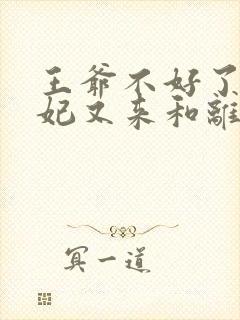 王爺不好了
妃又来和離
冥一道